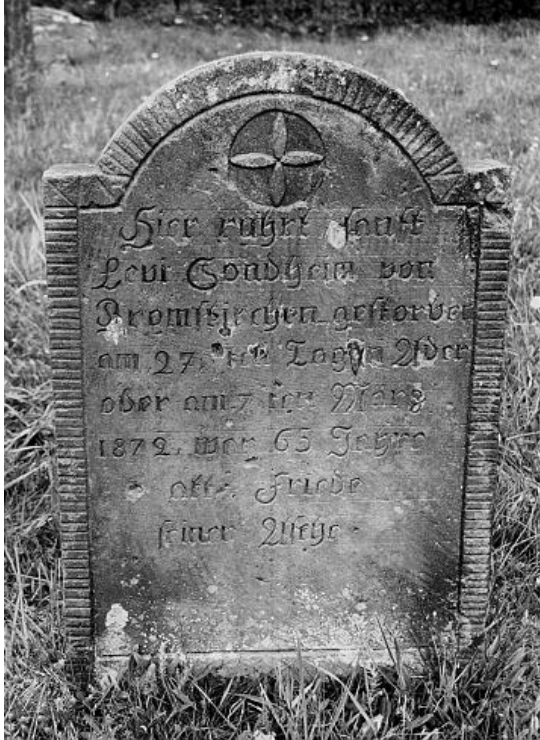 Hier ruhet sanft
Levi Sondheim von
Bromskirchen gestorben
am 27. ten Tog in Ader
oder am 7 ten März
1872. war 65 Jahre
alt. Friede
seiner Asche